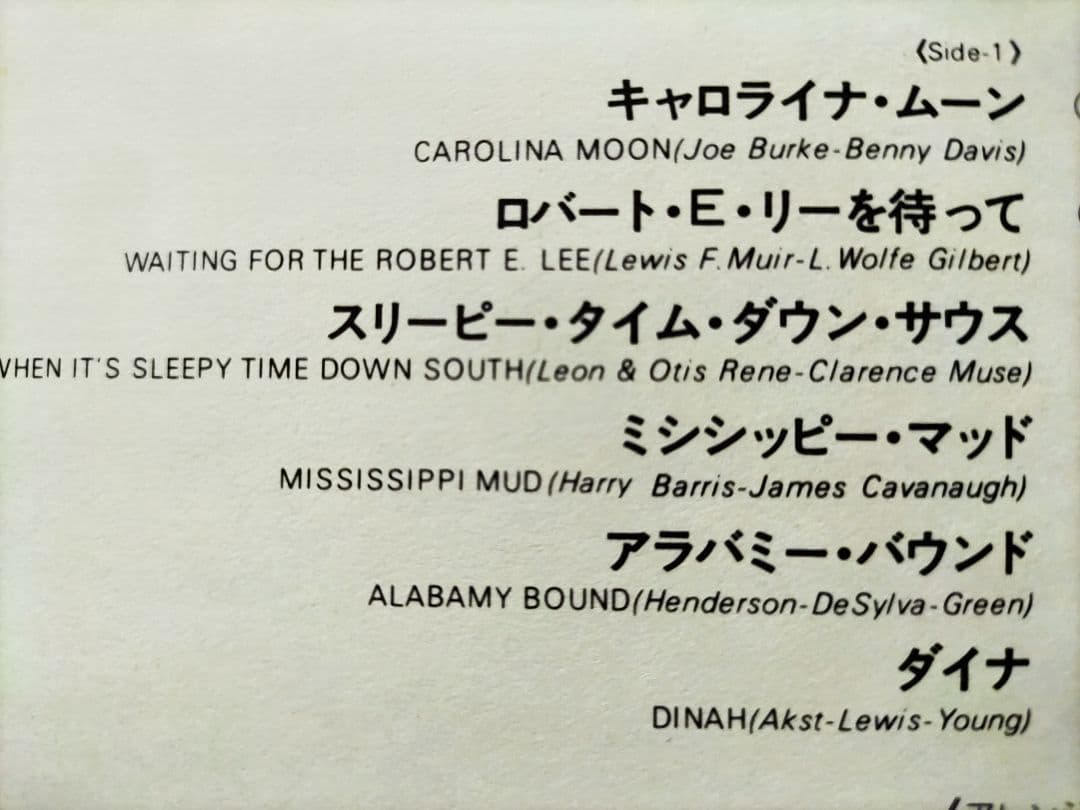 《Side-1》
キャロライナ・ムーン
CAROLINA MOON(Joe Burke-Benny Davis)
ロバート・E・リーを待って
WAITING FOR THE ROBERT E. LEE(Lewis F. Muir-L. Wolfe Gilbert)
スリーピー・タイム・ダウン・サウス
WHEN IT'S SLEEPY TIME DOWN SOUTH(Leon & Otis Rene-Clarence Muse)
ミシシッピー・マッド
MISSISSIPPI MUD(Harry Barris-James Cavanaugh)
アラバミー・バウンド
ALABAMY BOUND(Henderson-DeSylva-Green)
ダイナ
DINAH(Akst-Lewis-Young)